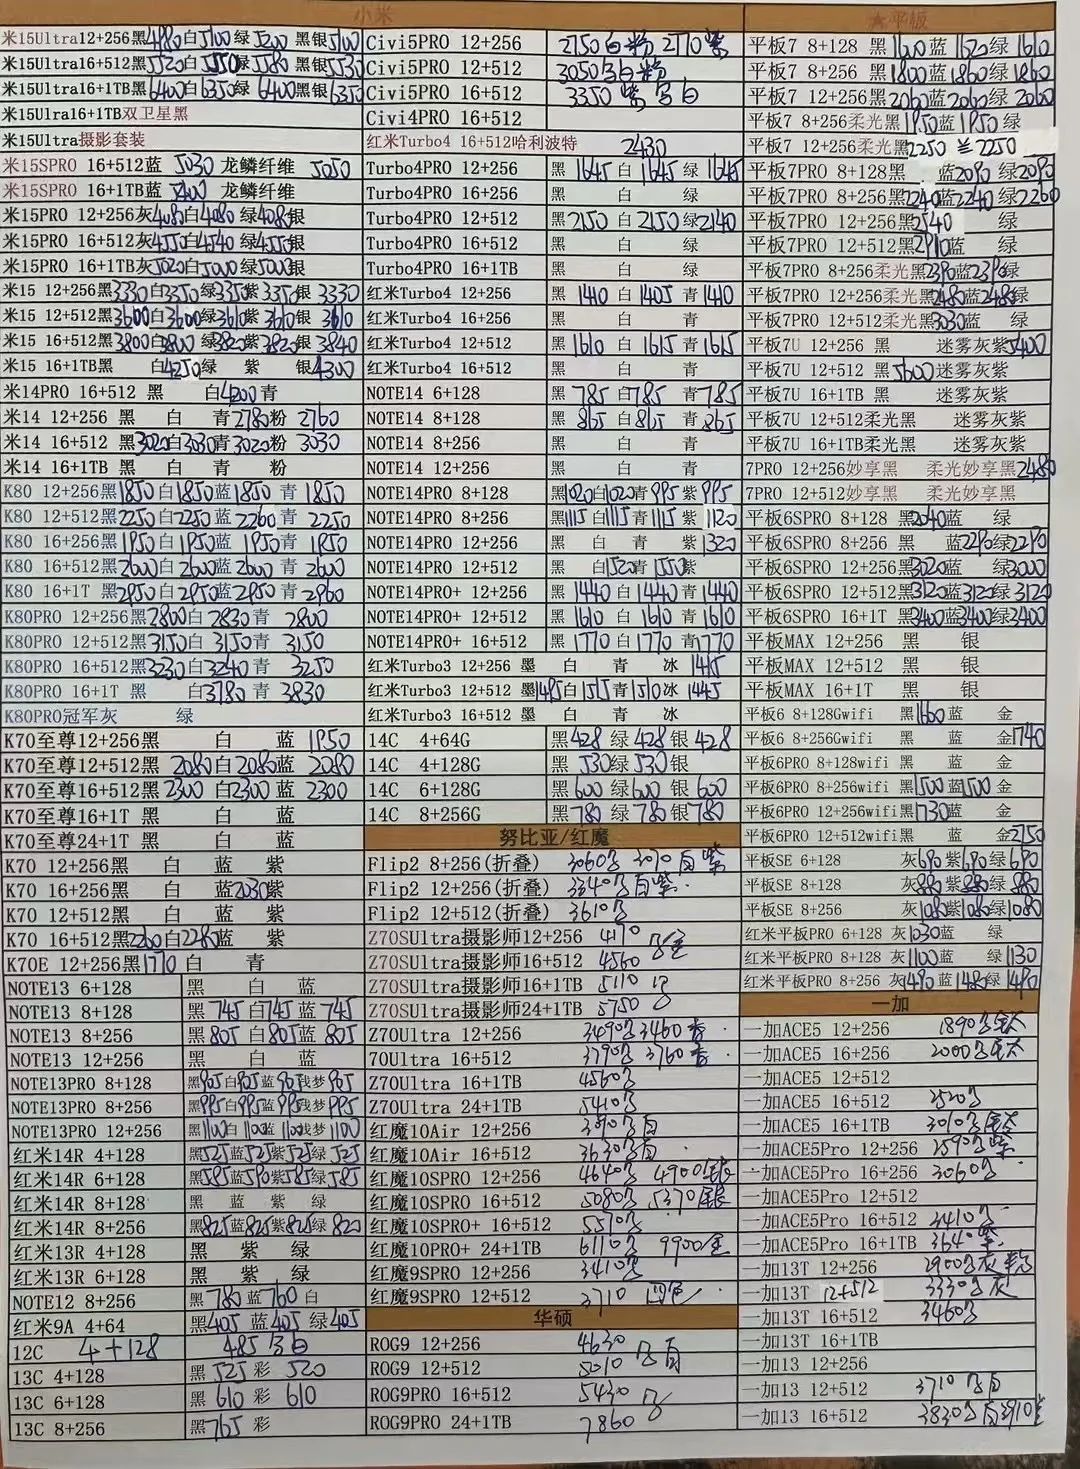 小米
米15Ultra12+256黑4980白5100绿5200 黑银5100
米15Ultra16+512黑5520白5550绿5580 黑银5530
米15Ultra16+1TB黑6400白6350绿 6400黑银6350
米15Ulra16+1TB双卫星黑
米15Ultra摄影套装
米15SPRO 16+512蓝 5030 龙鳞纤维 5050
米15SPRO 16+1TB蓝 5400 龙鳞纤维
米15PRO 12+256灰4080白4080绿4080银
米15PRO 16+512灰4550白4540绿4550银
米15PRO 16+1TB灰5020白5000绿5000银
米15 12+256黑3330白3350绿3350紫3350银 3330
米15 12+512黑3600白3600绿3610紫3610银 3610
米15 16+512黑3800白3800 绿3820紫3820银 3840
米15 16+1TB黑 白4250绿 紫 银4300
米14PRO 16+512 黑 白4200青
米14 12+256 黑 白 青2780粉 2760
米14 16+512 黑3020白3030青3020粉 3030
米14 16+1TB 黑 白 青 粉
K80 12+256黑1850白1850蓝1850 青 1850
K80 12+512黑2250白2250蓝 2260青 2250
K80 16+256黑1950白1950蓝 1950青 1950
K80 16+512黑2600白2600蓝2600 青 2600
K80 16+1T 黑2950白2950蓝2950 青 2960
K80PRO 12+256黑2800白 2830青 2800
K80PRO 12+512黑3150白 3150青 3150
K80PRO 16+512黑3230白3240青 3250
K80PRO 16+1T 黑 白3780青 3830
K80PRO冠军灰 绿
K70至尊12+256黑 白 蓝 1950
K70至尊12+512黑 2080白2080蓝 2080
K70至尊16+512黑2300 白2300蓝 2300
K70至尊16+1T 黑 白 蓝
K70至尊24+1T 黑 白 蓝
K70 12+256黑 白 蓝 紫
K70 16+256黑 白 蓝2030紫
K70 12+512黑 白 蓝 紫
K70 16+512黑2260白2280蓝 紫
K70E 12+256黑1770 白 青
NOTE13 6+128 黑 白 蓝
NOTE13 8+128 黑 745 白745 蓝 745
NOTE13 8+256 黑 805 白805蓝 805
NOTE13 12+256 黑 白 蓝
NOTE13PRO 8+128 黑905白905蓝905浅梦905
NOTE13PRO 8+256 黑995白995蓝995浅梦995
NOTE13PRO 12+256 黑1100白1100蓝1100浅梦1100
红米14R 4+128 黑525蓝525紫525绿525
红米14R 6+128 黑585蓝590紫585绿585
红米14R 8+128 黑 蓝 紫 绿
红米14R 8+256 黑825蓝825紫825绿 820
红米13R 4+128 黑 紫 绿
红米13R 6+128 黑 紫 绿
NOTE12 8+256 黑 780 蓝 760 白
红米9A 4+64 黑405 蓝 405 绿405
12C 4+128 485 黑白
13C 4+128 黑 525 彩 520
13C 6+128 黑 610 彩 610
13C 8+256 黑765 彩
Civi5PRO 12+256 2750白粉 2770紫
Civi5PRO 12+512 3050 白粉
Civi5PRO 16+512 3350 紫 白
Civi4PRO 16+512
红米Turbo4 16+512哈利波特 2430
Turbo4PRO 12+256 黑 1645 白 1645 绿 1645
Turbo4PRO 16+256 黑 白 绿
Turbo4PRO 12+512 黑2150 白 2150 绿2140
Turbo4PRO 16+512 黑 白 绿
Turbo4PRO 16+1TB 黑 白 绿
红米Turbo4 12+256 黑 1410 白 1405 青1410
红米Turbo4 16+256 黑 白 青
红米Turbo4 12+512 黑 1610 白 1615 青1615
红米Turbo4 16+512 黑 白 紫
NOTE14 6+128 黑 785 白785 青785
NOTE14 8+128 黑 865 白 865 青865
NOTE14 8+256 黑 白 青
NOTE14 12+256 黑 白 青
NOTE14PRO 8+128 黑1020白1020青995紫995
NOTE14PRO 8+256 黑1115白1115青1115 紫 1120
NOTE14PRO 12+256 黑 白 青 紫1320
NOTE14PRO 12+512 黑 白1520青1550紫
NOTE14PRO+ 12+256 黑1440 白1440 青1440
NOTE14PRO+ 12+512 黑1610 白 1610 青1610
NOTE14PRO+ 16+512 黑1770 白 1770 青1770
红米Turbo3 12+256 墨 白 青 冰 1415
红米Turbo3 12+512 墨1495白1515青1510冰 1445
红米Turbo3 16+512 墨 白 青 冰
14C 4+64G 黑428 绿 428 银 428
14C 4+128G 黑 530绿 530 银
14C 6+128G 黑 600绿 600 银 600
14C 8+256G 黑 780 绿 780 银780
努比亚/红魔
Flip2 8+256(折叠) 3060黑 3070 白紫
Flip2 12+256(折叠) 3340黑白紫
Flip2 12+512(折叠) 3610黑
Z70SUltra摄影师12+256 4170 黑金
Z70SUltra摄影师16+512 4560
Z70SUltra摄影师16+1TB 5110
Z70SUltra摄影师24+1TB 5750
Z70Ultra 12+256 3490黑3460
70Ultra 16+512 3790黑 3760
Z70Ultra 16+1TB 4560黑
Z70Ultra 24+1TB 5410黑
红魔10Air 12+256 3090黑白
红魔10Air 16+512 3630黑白
红魔10SPRO 12+256 4640黑 4900银
红魔10SPRO 16+512 5080黑 5370银
红魔10SPRO+ 16+512 5570黑
红魔10PRO+ 24+1TB 6110黑 9900金
红魔9SPRO 12+256 3410黑
红魔9SPRO 12+512 3710 四色
华硕
ROG9 12+256 4630 黑白
ROG9 12+512 5010
ROG9PRO 16+512 5430 黑
ROG9PRO 24+1TB 7860
大平板
平板7 8+128 黑 1600蓝 1620绿 1610
平板7 8+256 黑1800蓝1860绿 1860
平板7 12+256 黑2060蓝2060绿 2060
平板7 8+256柔光黑1950蓝1950 绿
平板7 12+256柔光黑2250 蓝 2250
平板7PRO 8+128黑 蓝2090 绿2090
平板7PRO 8+256黑2240蓝2240 绿2260
平板7PRO 12+256黑2540 绿
平板7PRO 12+512黑2910蓝 绿
平板7PRO 8+256柔光黑2390蓝2390绿
平板7PRO 12+256柔光黑2480蓝2480绿
平板7PRO 12+512柔光黑3030蓝 绿
平板7U 12+256 黑 迷雾灰紫5400
平板7U 12+512 黑5600 迷雾灰紫
平板7U 16+1TB 黑 迷雾灰紫
平板7U 12+512柔光黑 迷雾灰紫
平板7U 16+1TB柔光黑 迷雾灰紫
7PRO 12+256妙享黑 柔光妙享黑2480
7PRO 12+512妙享黑 柔光妙享黑
平板6SPRO 8+128 黑2040蓝 绿
平板6SPRO 8+256 黑 蓝2290绿2290
平板6SPRO 12+256黑3020蓝 绿3000
平板6SPRO 12+512黑3120蓝3120绿 3120
平板6SPRO 16+1T 黑3400蓝3400绿3400
平板MAX 12+256 黑 银
平板MAX 12+512 黑 银
平板MAX 16+1T 黑 银
平板6 8+128Gwifi 黑1600蓝 金
平板6 8+256Gwifi 黑 蓝 金1740
平板6PRO 8+128wifi 黑 蓝 金
平板6PRO 8+256wifi 黑1500蓝1500 金
平板6PRO 12+256wifi黑1730蓝 金
平板6PRO 12+512wifi黑 蓝 金2750
平板SE 6+128 灰690紫690绿 690
平板SE 8+128 灰880紫880绿 880
平板SE 8+256 灰1080紫1080绿1080
红米平板PRO 6+128 灰1030蓝 绿
红米平板PRO 8+128 灰1100蓝 绿1130
红米平板PRO 8+256 灰1490蓝1480绿 1490
一加
一加ACE5 12+256 1890黑钛
一加ACE5 16+256 2000黑钛
一加ACE5 12+512
一加ACE5 16+512 2520黑
一加ACE5 16+1TB 3010黑钛
一加ACE5Pro 12+256 2590黑紫
一加ACE5Pro 16+256 3060黑
一加ACE5Pro 12+512
一加ACE5Pro 16+512 3410黑
一加ACE5Pro 16+1TB 3640紫
一加13T 12+256 2900黑灰 粉
一加13T 12+512 3330黑灰
一加13T 16+512 3460黑
一加13T 16+1TB
一加13 12+256
一加13 12+512 3710 黑白
一加13 16+512 3830黑白3910